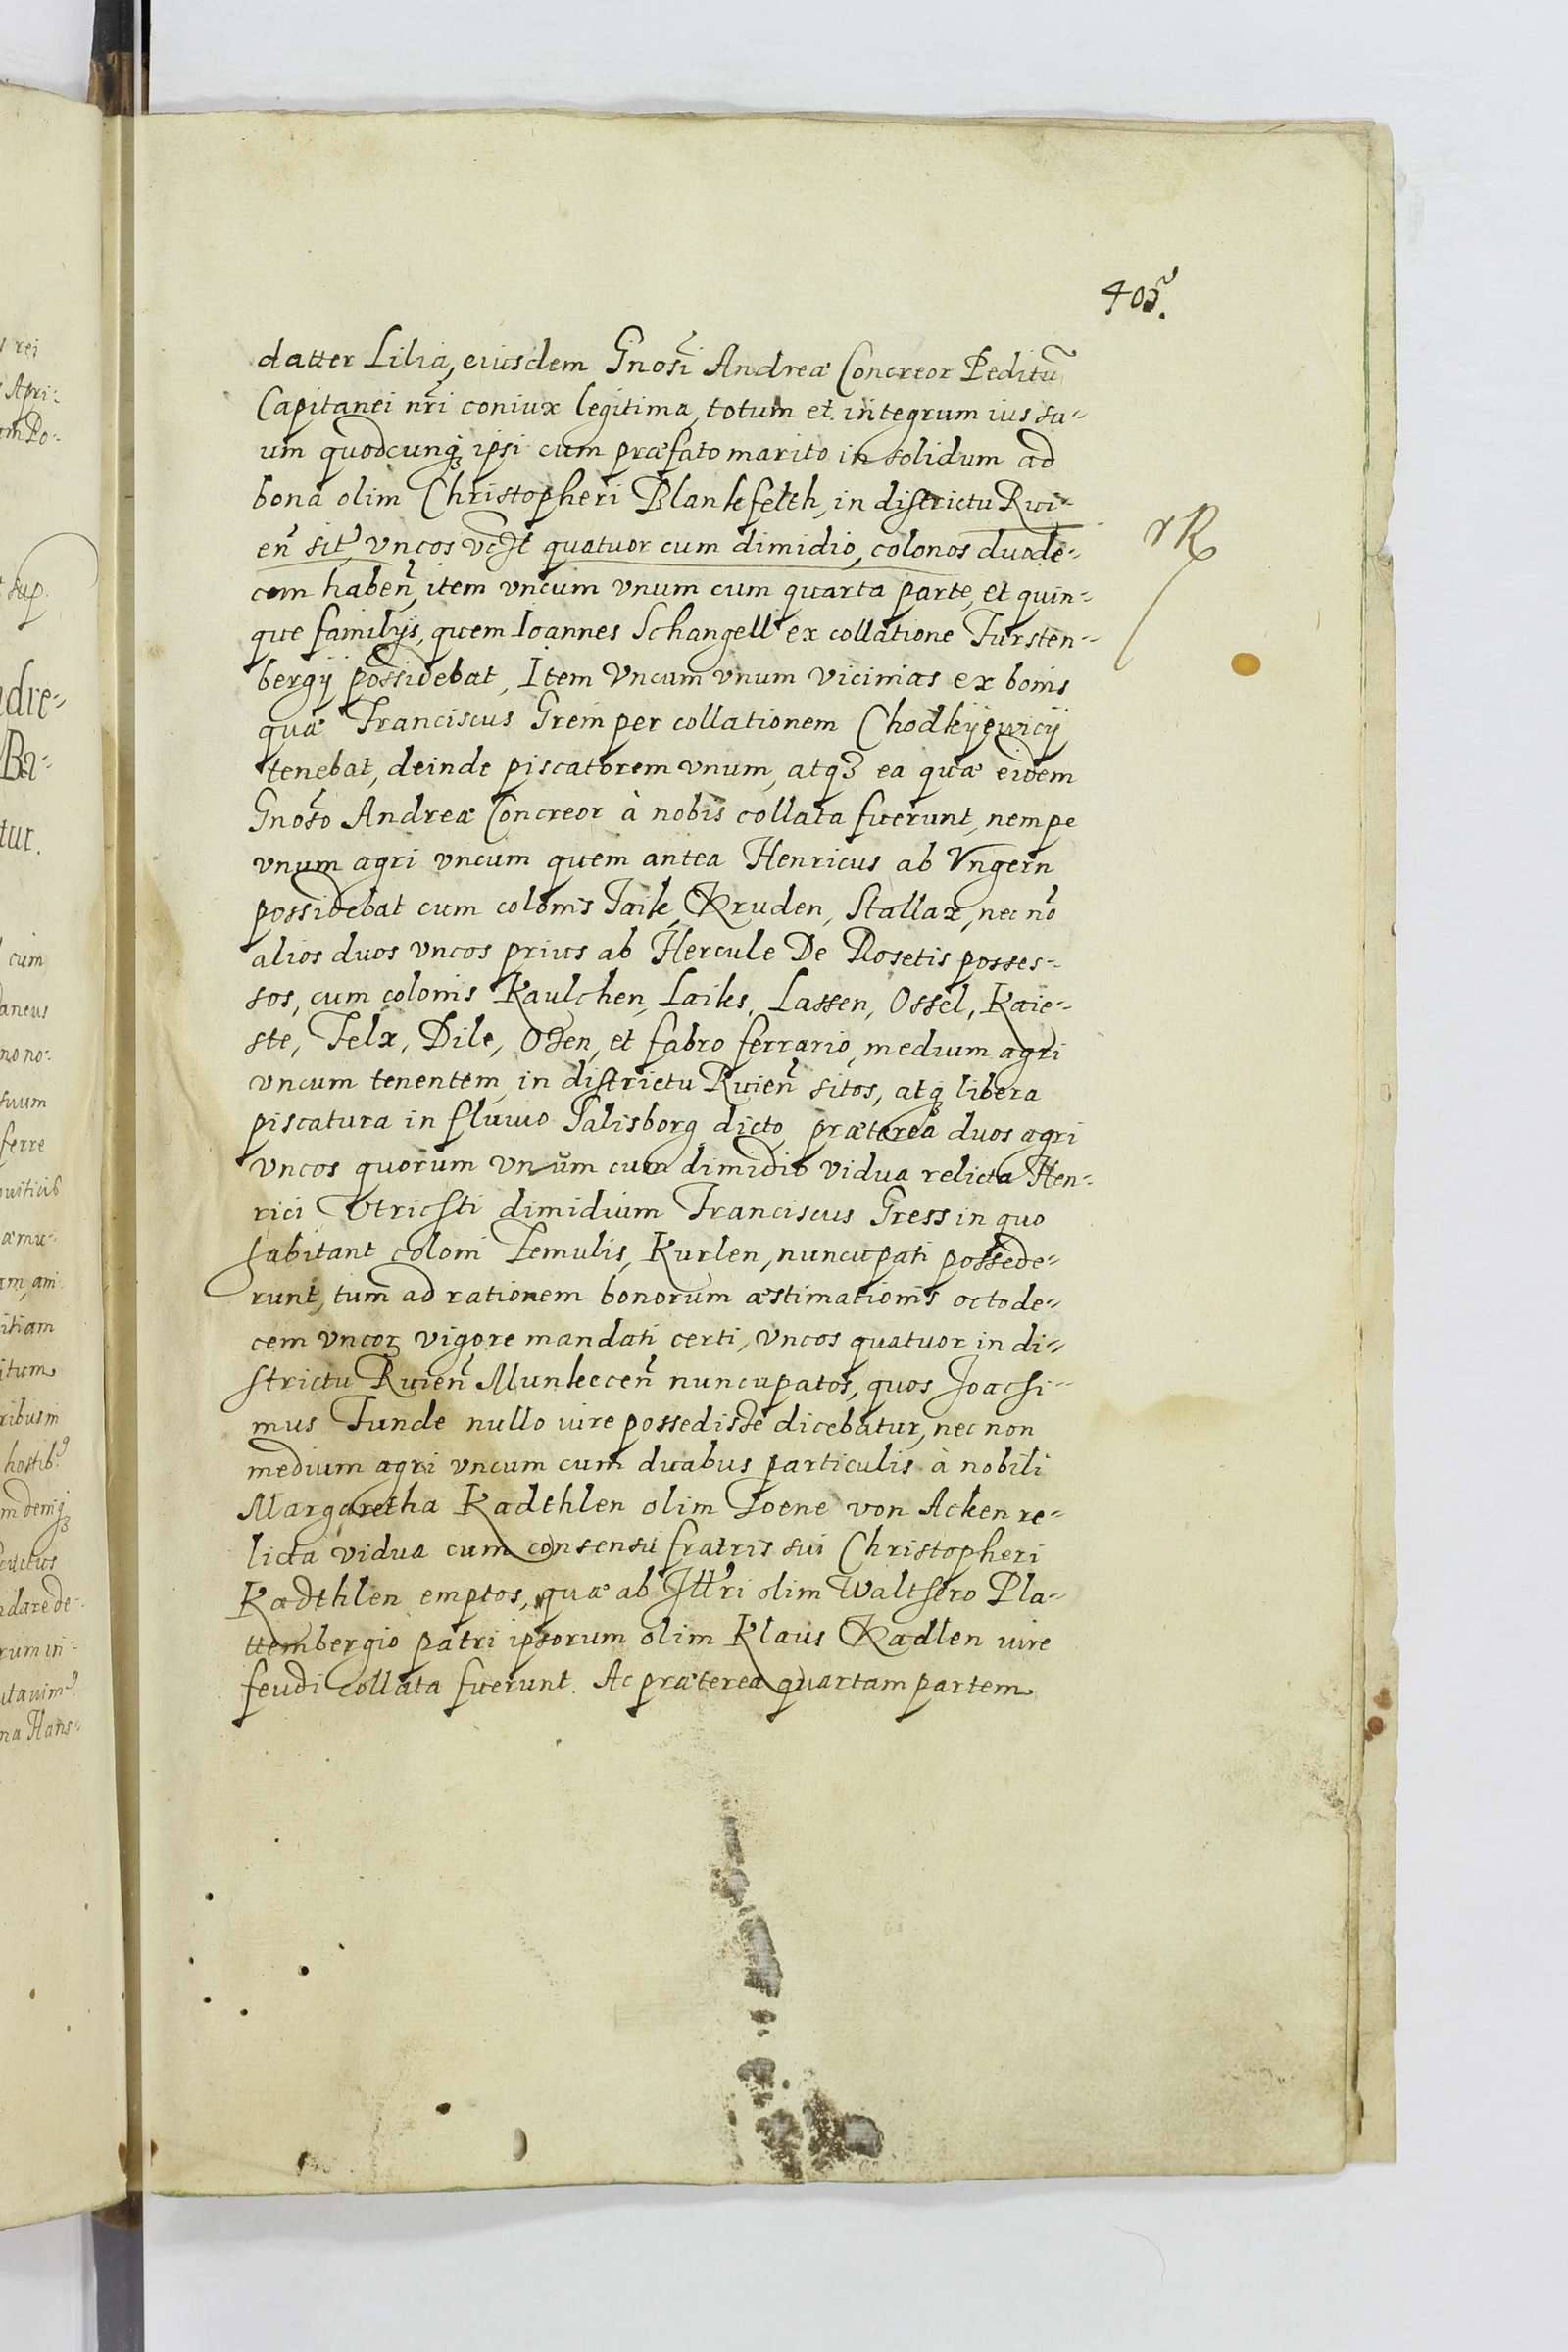 403.
datter Lilia, eiusdem Gnosi Andreæ Concreor Peditũ
Capitanei nri coniux legitima, totum et integrum ius su-
um quodcunqꝫ ipsi cum præfato marito in solidum ad
bona olim Christopheri Blankfelth, in districtu Rui-
en̄ sit, vncos quatuor cum dimidio, colonos duode-
cem haben̄, item vncum vnum cum quarta parte, et quin-
que familÿs, quem Ioannes Schangell ex collatione Fursten-
bergÿ possidebat, Item Vncum vnum vicinias ex bonis
quæ Franciscus Grein per collationem Chodkÿewicÿ
tenebat, deinde piscatorem vnum, atqꝫ ea quæ eidem
Gnoso Andreæ Concreor à nobis collata fuerunt, nempe
vnum agri vncum quem antea Henricus ab Vngern
possidebat cum colonis Jaik, Kruden, Stallax, nec nō
alios duos vncos prius ab Hercule De Rosetis posses-
sos, cum colonis Kaulchen, Laiks, Lassen, Ossel, Kaie-
ste, Telx, Dile, Osen, et fabro ferrario, medium agri
vncum tenentem, in districtu Ruien̄ sitos, atqꝫ libera
piscatura in fluuio Salisborg dicto, præterea duos agri
vncos quorum vnum cum dimidio vidua relicta Hen-
rici Vtrichti dimidium Franciscus Gress in quo
habitant coloni Temulis, Kurlen, nuncupati possede-
runt, tum ad rationem bonorum æstimationis octode-
cem vncoꝝ vigore mandati certi, vncos quatuor in di-
strictu Ruien̄ Munkecen̄ nuncupatos, quos Joachi-
mus Funde nullo iure possedisse dicebatur, nec non
medium agri vncum cum duabus particulis à nobili
Margaretha Kadthlen olim Toene von Acken re-
licta vidua cum consensu fratris sui Christopheri
Kadthlen emptos, quæ ab Illri olim Walthero Pla-
ttembergio patri ipsorum olim Klaus Kadlen iure
feudi collata fuerunt. Ac præterea quartam partem